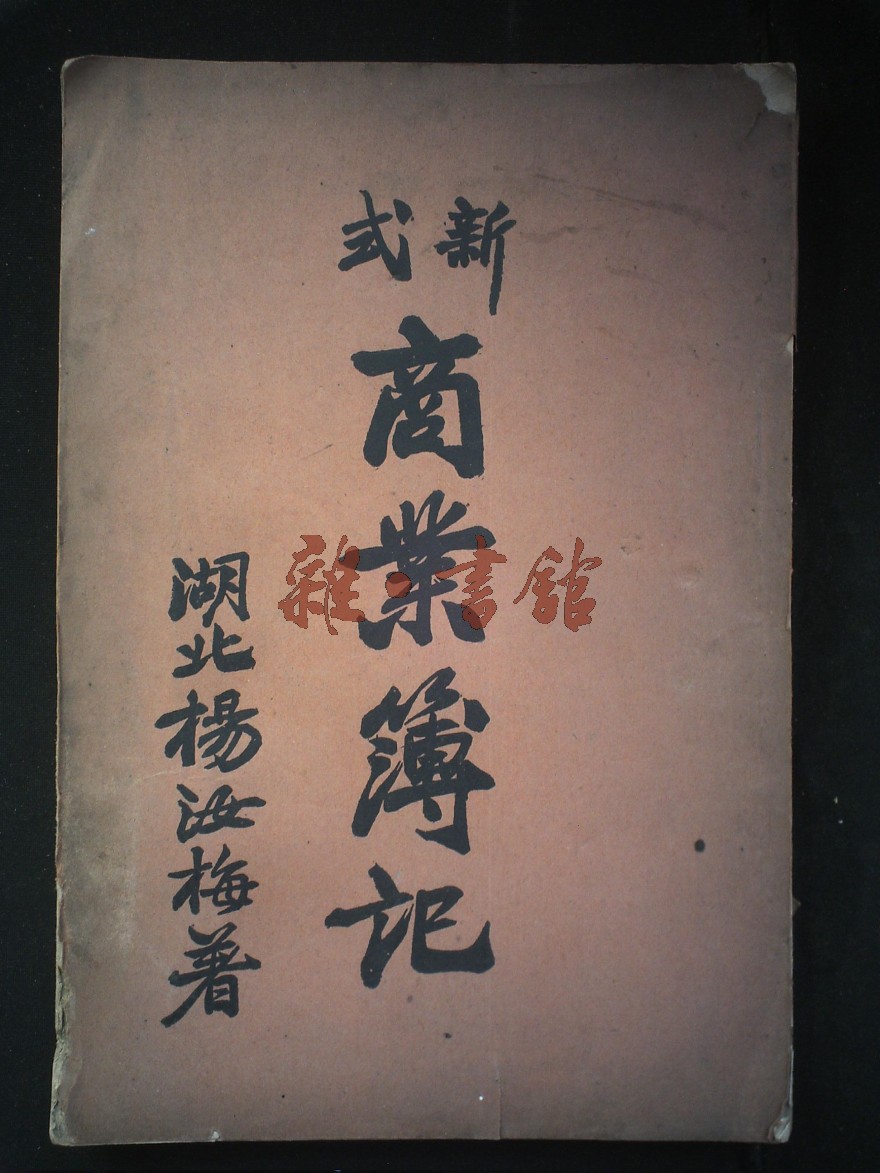 新式
商業簿記
湖北楊汝梅著
雜·書館